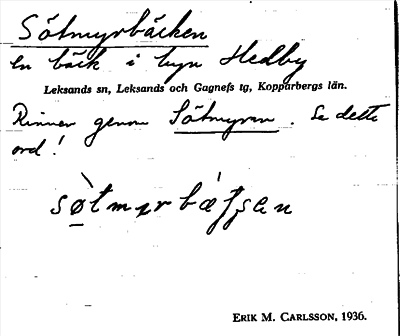 Sötmyrbäcken
en bäck i byn Hedby
Leksands sn, Leksands och Gagnefs tg, Kopparbergs län.
Rinner genom Sötmyran. Se detta
ord!
sø̀tmyrbǽtſen
ERIK M. CARLSSON, 1936.